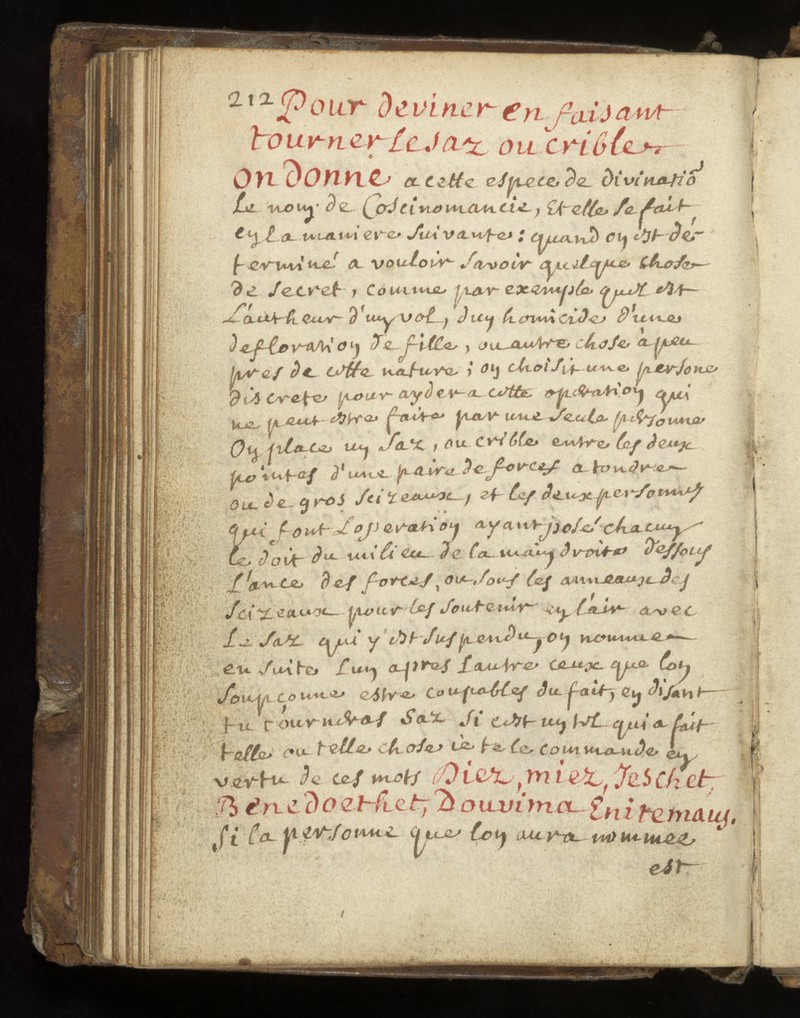 212 Pour deviner en faisant
tourner le saz ou crible
On Donne a cette espece de divinatiõ
Le nom de Coscinomancie, Et elle se fait
en la maniere suivante : quand on est dé-
terminé a vouloir savoir quelque chose
de secret, comme par exemple quel est
L'autheur d'un vol, d'un homicide d'une
defloration de fille, ou autre chose a peu
pres de cette nature ; on choisit une persone
discrete pour ayder a cette operation qui
ne peut estre faite par une seule personne
On place un saz, ou crible entre les deux
pointes d'une paire de forces a tondre
ou de gros scizeaux, et les deux personnes
qui font L'operation ayant posé chacun
le doit du milieu de la main droite dessous
l'ance des forces, ou sous les anneaux des
scizeaux pour les soutenir en l'air avec
Le saz qui y est suspendu, on nomme
en suite l'un apres l'autre ceux que lon
soupçonne estre coupables du fait, en disant
tu tourneras Saz si cest un tel qui a fait
telle ou telle chose ie te le commande en
vertu de ces mots Diez, miez, Jeschet,
Benedoethet, Douvima Enitemaus.
Si la personne que lon aura nommee
est